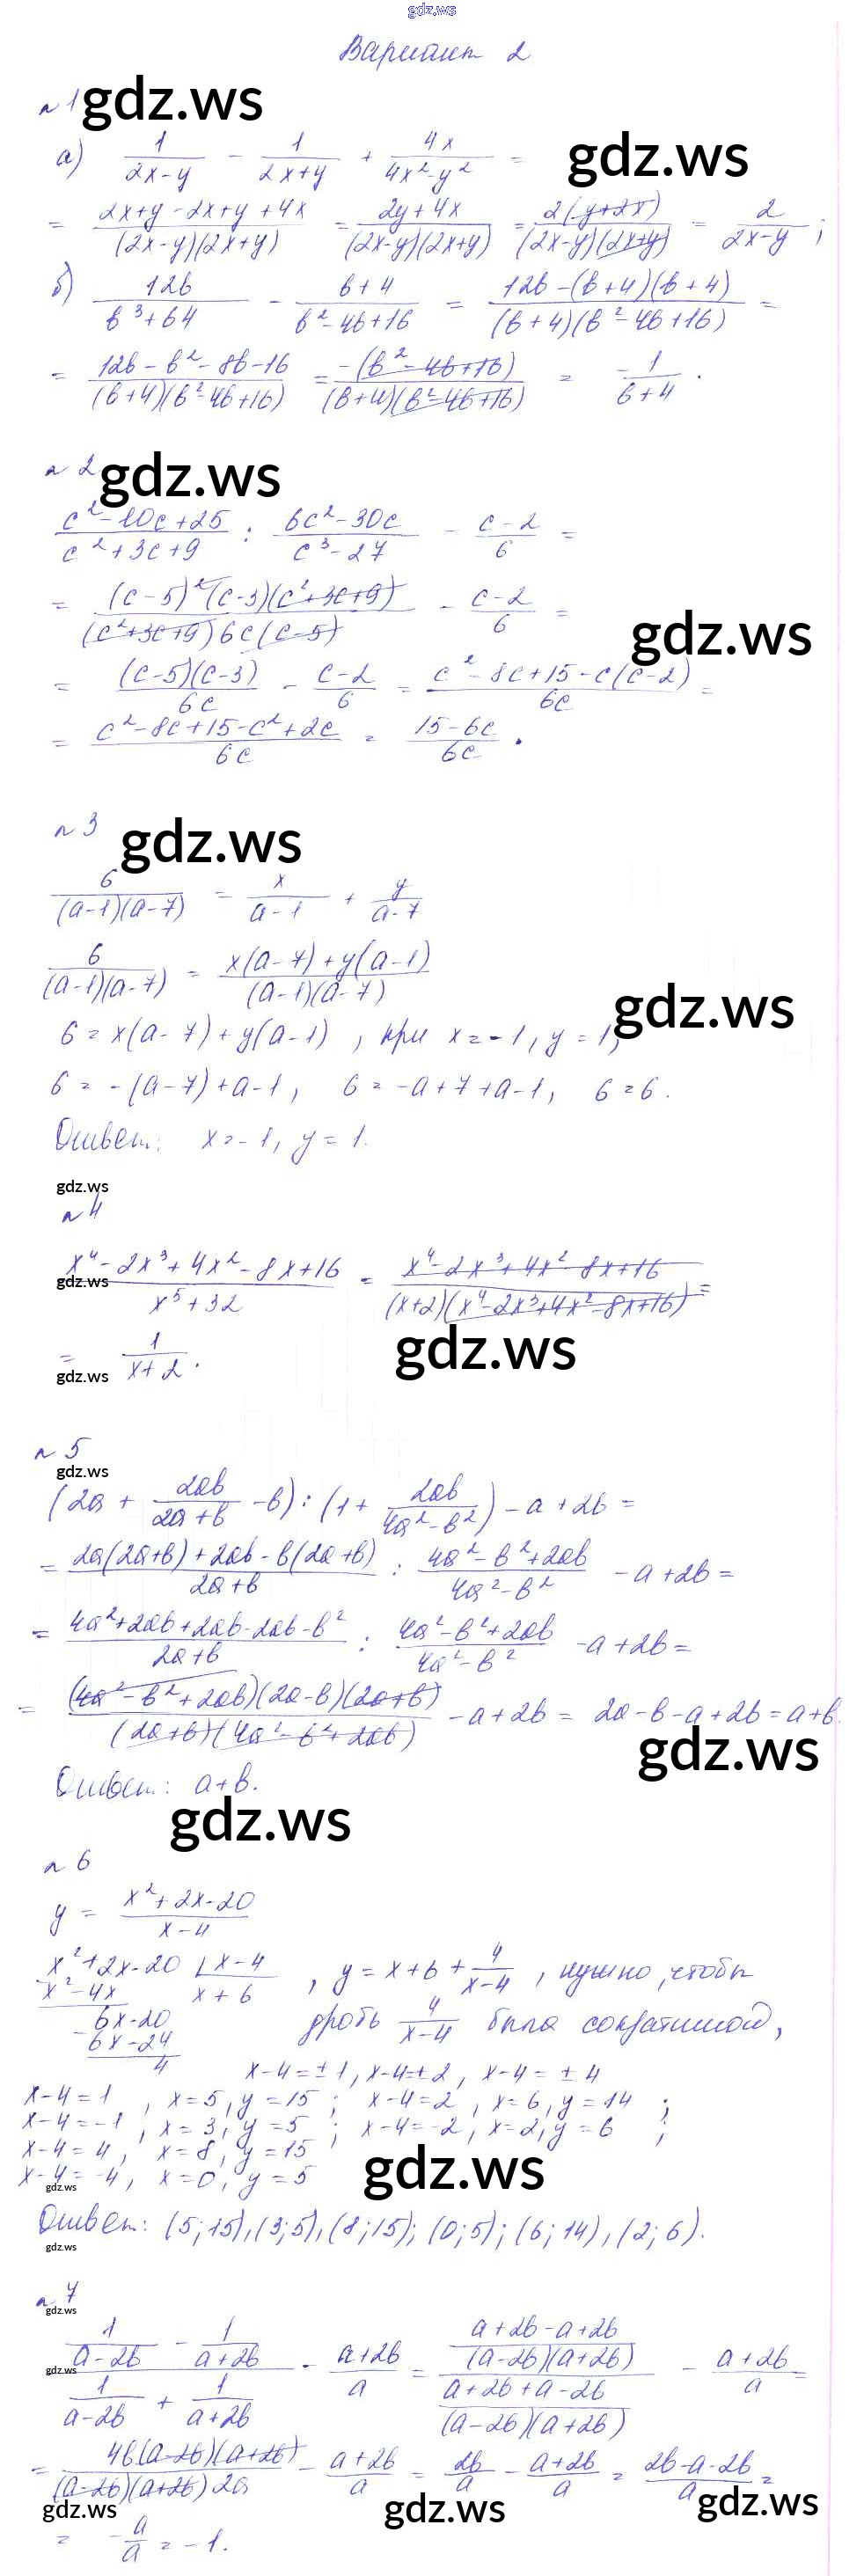 gdz.ws
Вариант 2
№1 gdz.ws
а) 1/(2x-y) - 1/(2x+y) + 4x/(4x²-y²) = gdz.ws
= (2x+y-2x+y+4x)/((2x-y)(2x+y)) = (2y+4x)/((2x-y)(2x+y)) = 2(y+2x)/((2x-y)(2x+y)) = 2/(2x-y);
б) 12b/(b³+64) - (b+4)/(b²-4b+16) = (12b-(b+4)(b+4))/((b+4)(b²-4b+16)) =
= (12b-b²-8b-16)/((b+4)(b²-4b+16)) = -(b²-4b+16)/((b+4)(b²-4b+16)) = -1/(b+4).
№2 gdz.ws
(c²-10c+25)/(c²+3c+9) : (6c²-30c)/(c³-27) - (c-2)/6 =
= (c-5)²(c-3)(c²+3c+9)/((c²+3c+9)6c(c-5)) - (c-2)/6 =
gdz.ws
= (c-5)(c-3)/6c - (c-2)/6 = (c²-8c+15-c(c-2))/6c =
= (c²-8c+15-c²+2c)/6c = (15-6c)/6c.
№3 gdz.ws
6/((a-1)(a-7)) = x/(a-1) + y/(a-7)
6/((a-1)(a-7)) = (x(a-7)+y(a-1))/((a-1)(a-7))
gdz.ws
6=x(a-7)+y(a-1), при x=-1, y=1,
6=-(a-7)+a-1, 6=-a+7+a-1, 6=6.
Ответ: x=-1, y=1.
gdz.ws
№4
(x⁴-2x³+4x²-8x+16)/(x⁵+32) = (x⁴-2x³+4x²-8x+16)/((x+2)(x⁴-2x³+4x²-8x+16)) =
gdz.ws
= 1/(x+2). gdz.ws
gdz.ws
№5
gdz.ws
(2a + 2ab/(2a+b) - b) : (1 + 2ab/(4a²-b²)) - a + 2b =
= (2a(2a+b)+2ab-b(2a+b))/(2a+b) : (4a²-b²+2ab)/(4a²-b²) - a+2b =
= (4a²+2ab+2ab-2ab-b²)/(2a+b) : (4a²-b²+2ab)/(4a²-b²) - a+2b =
= (4a²-b²+2ab)(2a-b)(2a+b)/((2a+b)(4a²-b²+2ab)) - a+2b = 2a-b-a+2b=a+b.
gdz.ws
Ответ: a+b.
gdz.ws
№6
y = (x²+2x-20)/(x-4)
x²+2x-20 | x-4 , y=x+6+4/(x-4), нужно, чтобы
x²-4x x+6
6x-20 дробь 4/(x-4) была сократимой,
- 6x-24
4
x-4=±1, x-4=±2, x-4=±4
x-4=1, x=5, y=15; x-4=2, x=6, y=14;
x-4=-1, x=3, y=5; x-4=-2, x=2, y=6;
x-4=4, x=8, y=15
gdz.ws
x-4=-4, x=0, y=5
gdz.ws
Ответ: (5;15),(3;5),(8;15);(0;5);(6;14),(2;6).
gdz.ws
№7
gdz.ws
(1/(a-2b) - 1/(a+2b))/(1/(a-2b) + 1/(a+2b)) - (a+2b)/a = ((a+2b-a+2b)/((a-2b)(a+2b)))/((a+2b+a-2b)/((a-2b)(a+2b))) - (a+2b)/a =
gdz.ws
= 4b(a-2b)(a+2b)/((a-2b)(a+2b)2a) - (a+2b)/a = 2b/a - (a+2b)/a = (2b-a-2b)/a =
gdz.ws gdz.ws gdz.ws
= -a/a = -1.